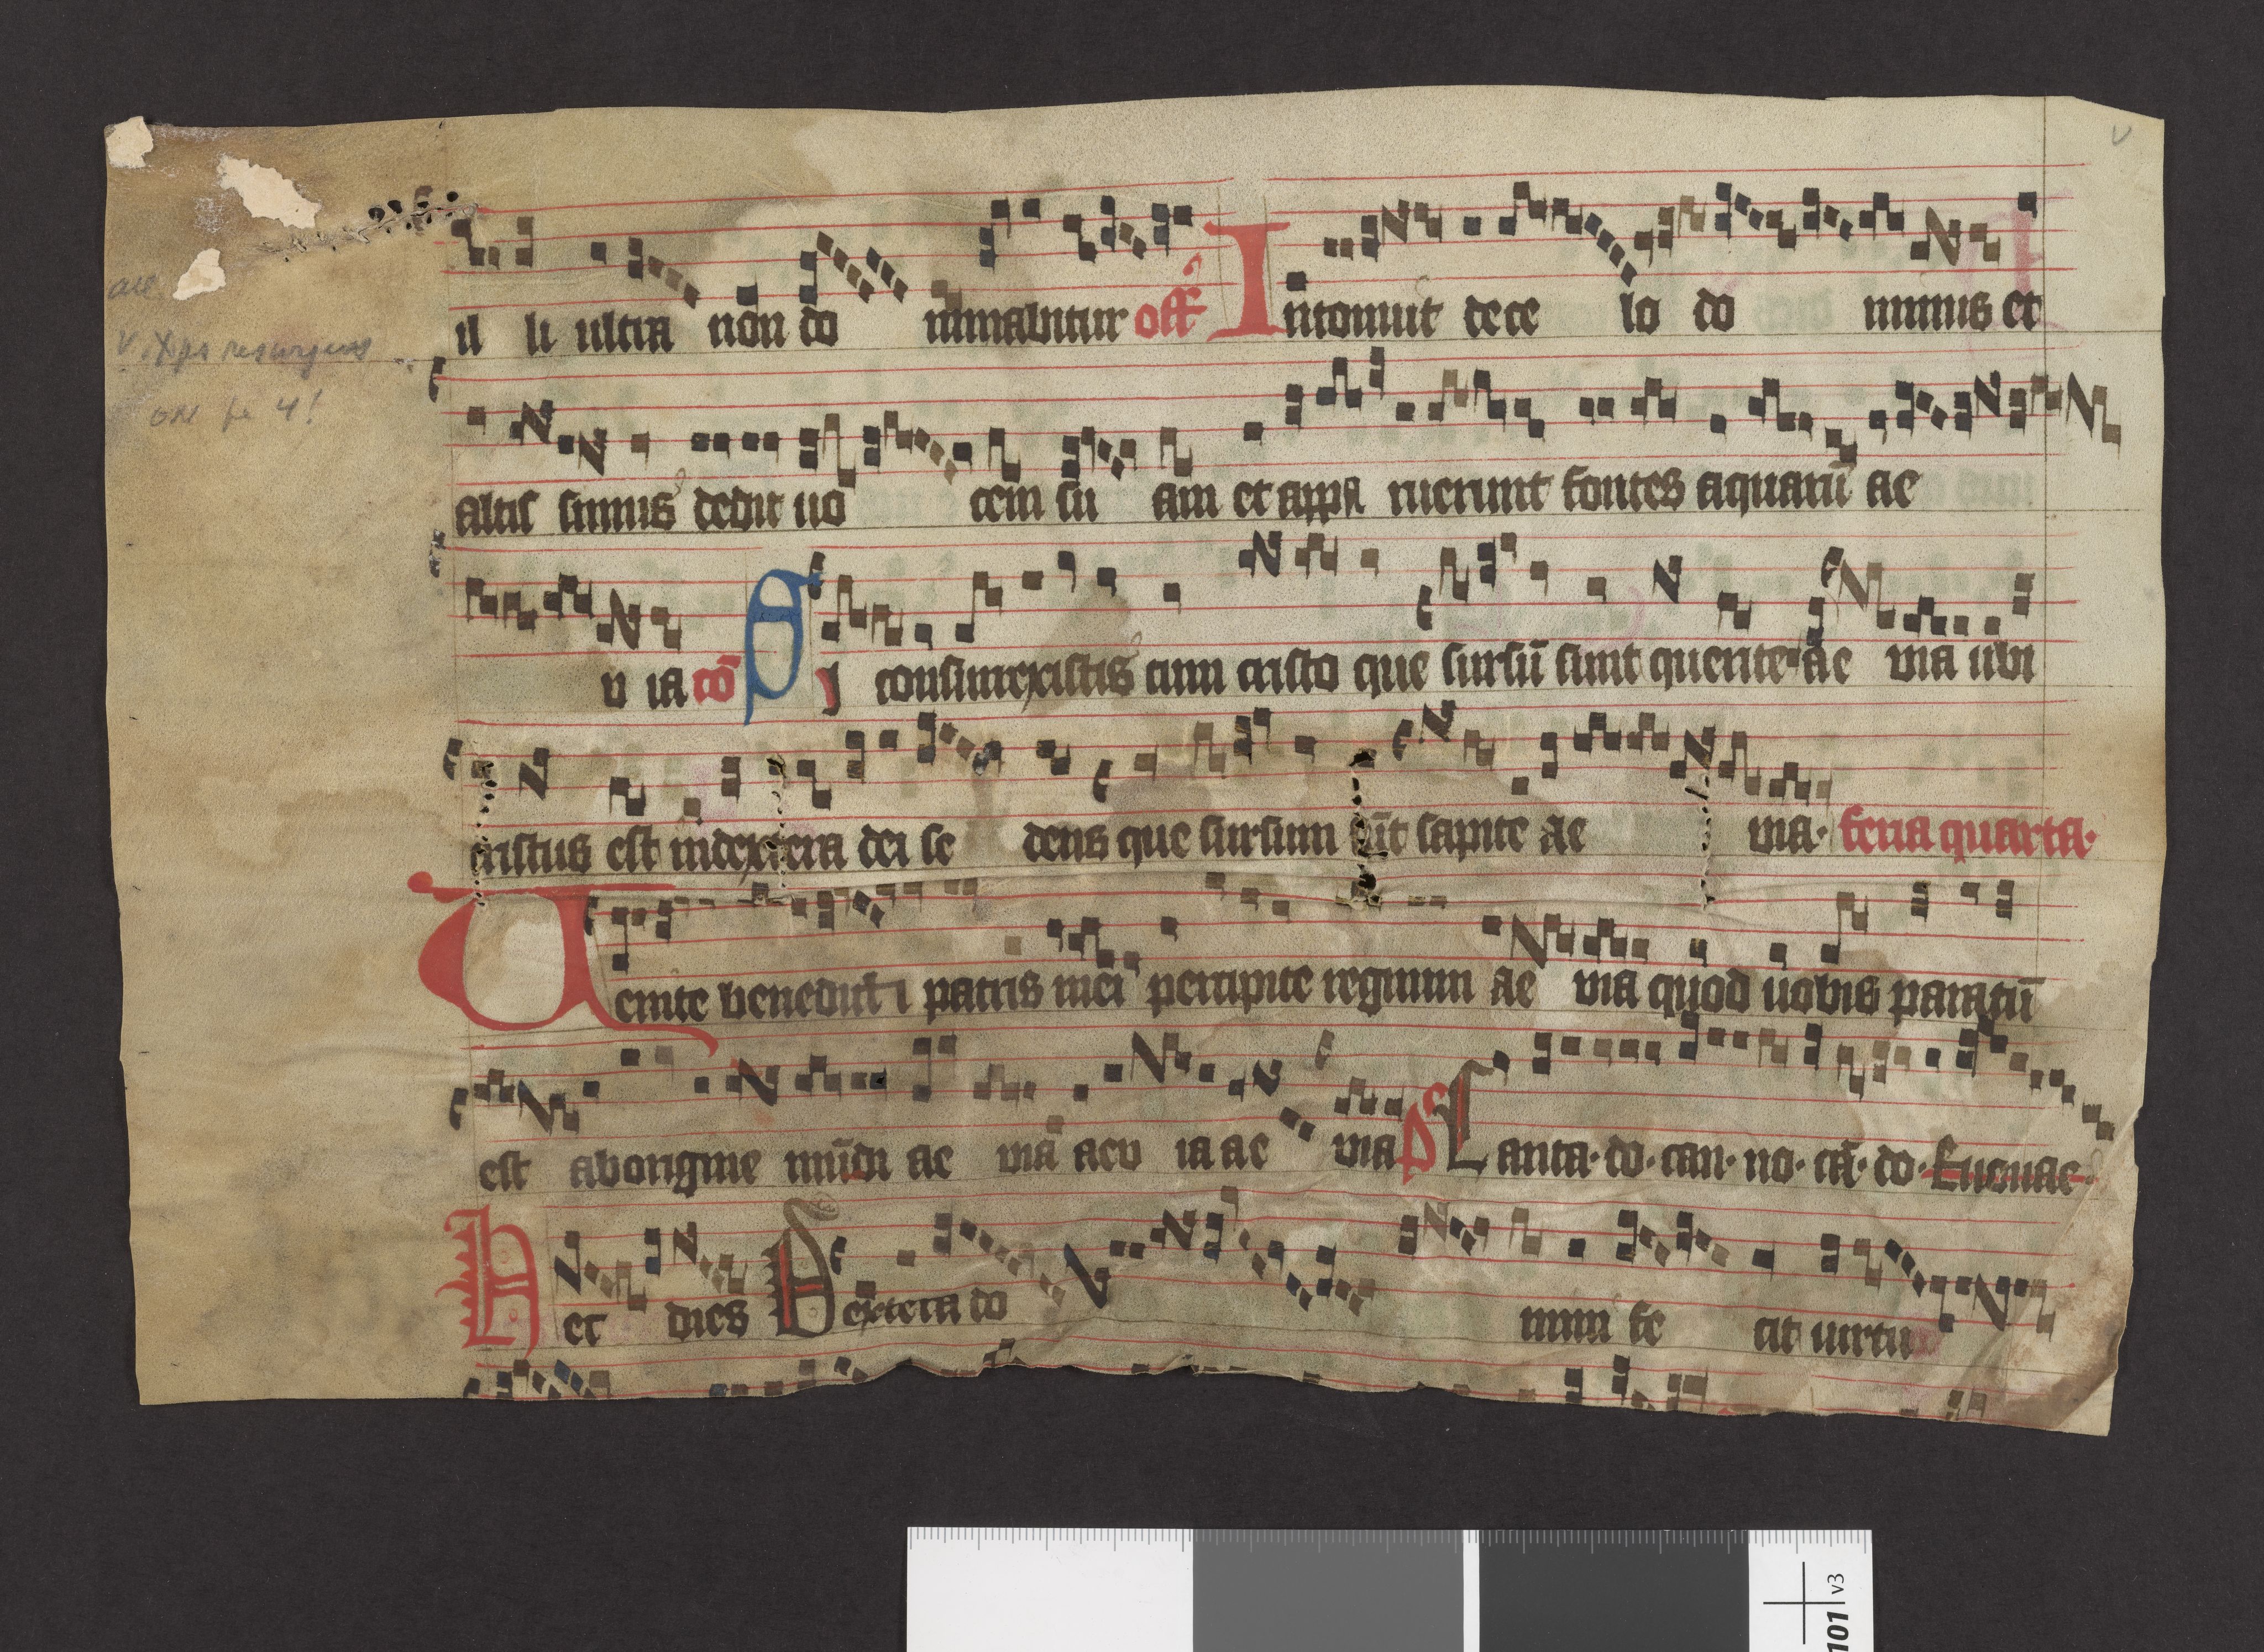 il li ultra non do minabitur off' Intonuit de ce lo do minus et
altis simus dedit uo cem su am et appa ruerunt fontes aquarū ae
u ia cō Si consurrexistis cum cristo que sursū sunt querite ae uia ubi
cristus est indextera dei se dens que sursum sūt sapite ae uia· feria quarta·
Uenite benedicti patris mei percipite regnum ae uia quod uobis paratū
est aborigine mūdi ae uia aeu ia ae uia ps Canta· do· can· no· cā· do· Euouae·
H ec dies Dextera do mini fe cit uirtu
all
V. Xps resurgens
on fe 4!
V
101 v3